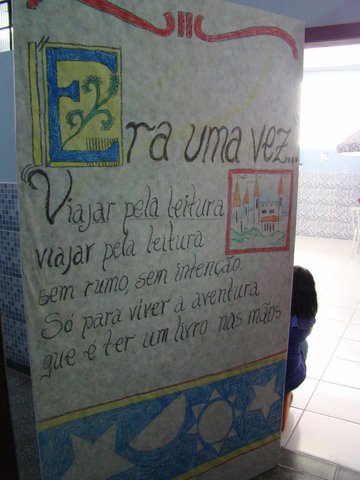 Era uma vez...
Viajar pela leitura
viajar pela leitura
sem rumo, sem intenção.
Só para viver a aventura
que é ter um livro nas mãos